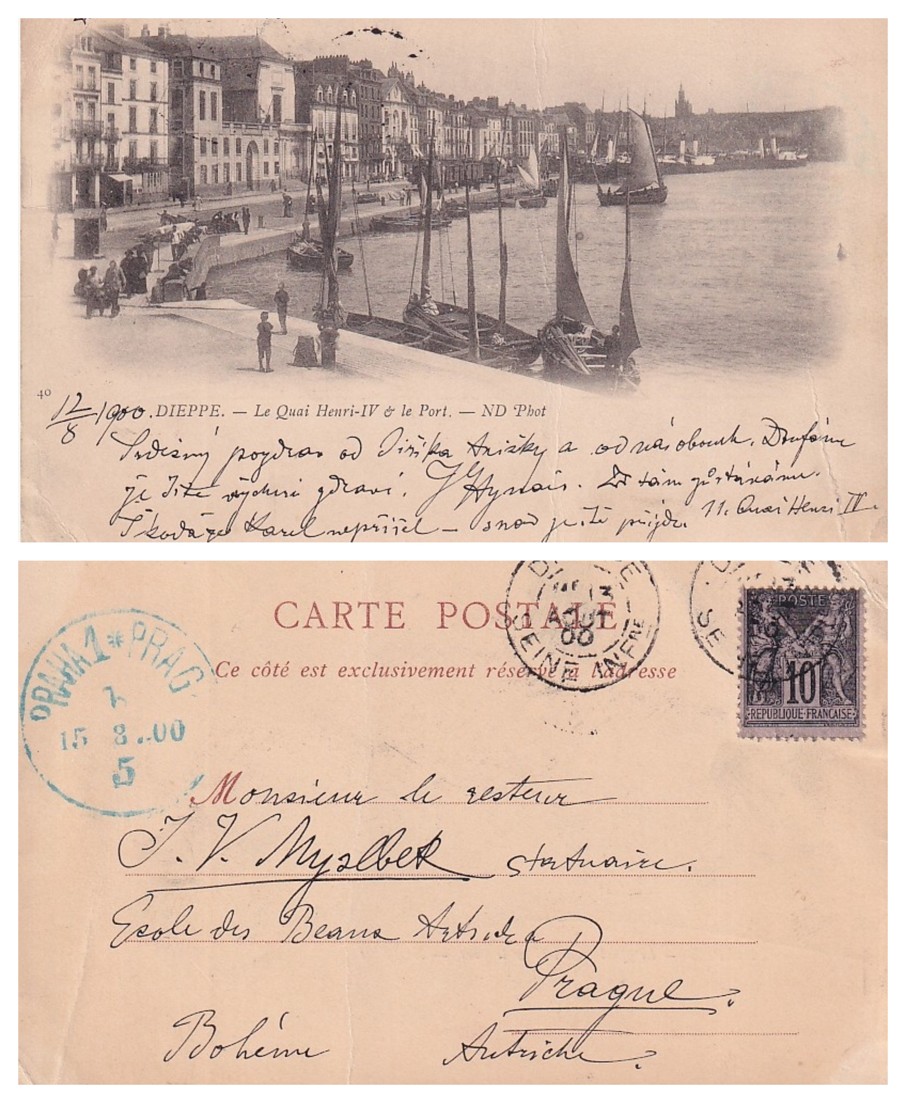 40
12/8 1900. DIEPPE. — Le Quai Henri-IV & le Port. — ND Phot
Srdečný pozdrav od Jiříka Anižky a od nás obouch. Doufáme
že jste všichni zdraví. Hynais. Zde tam zůstáváme.
Škoda že Karel nepřišel — snad ještě přijde. 11. Quai Henri IV.
CARTE POSTALE
Ce côté est exclusivement réservé à l'adresse
DIEPPE
13
AOUT
00
SEINE INFRE
POSTE
10
REPUBLIQUE FRANÇAISE
PRAHA 1 * PRAG
15 8 .. 00
5
Monsieur le recteur
J. V. Myslbek statuaire.
Ecole des Beaux Arts de
Prague.
Bohême Autriche.